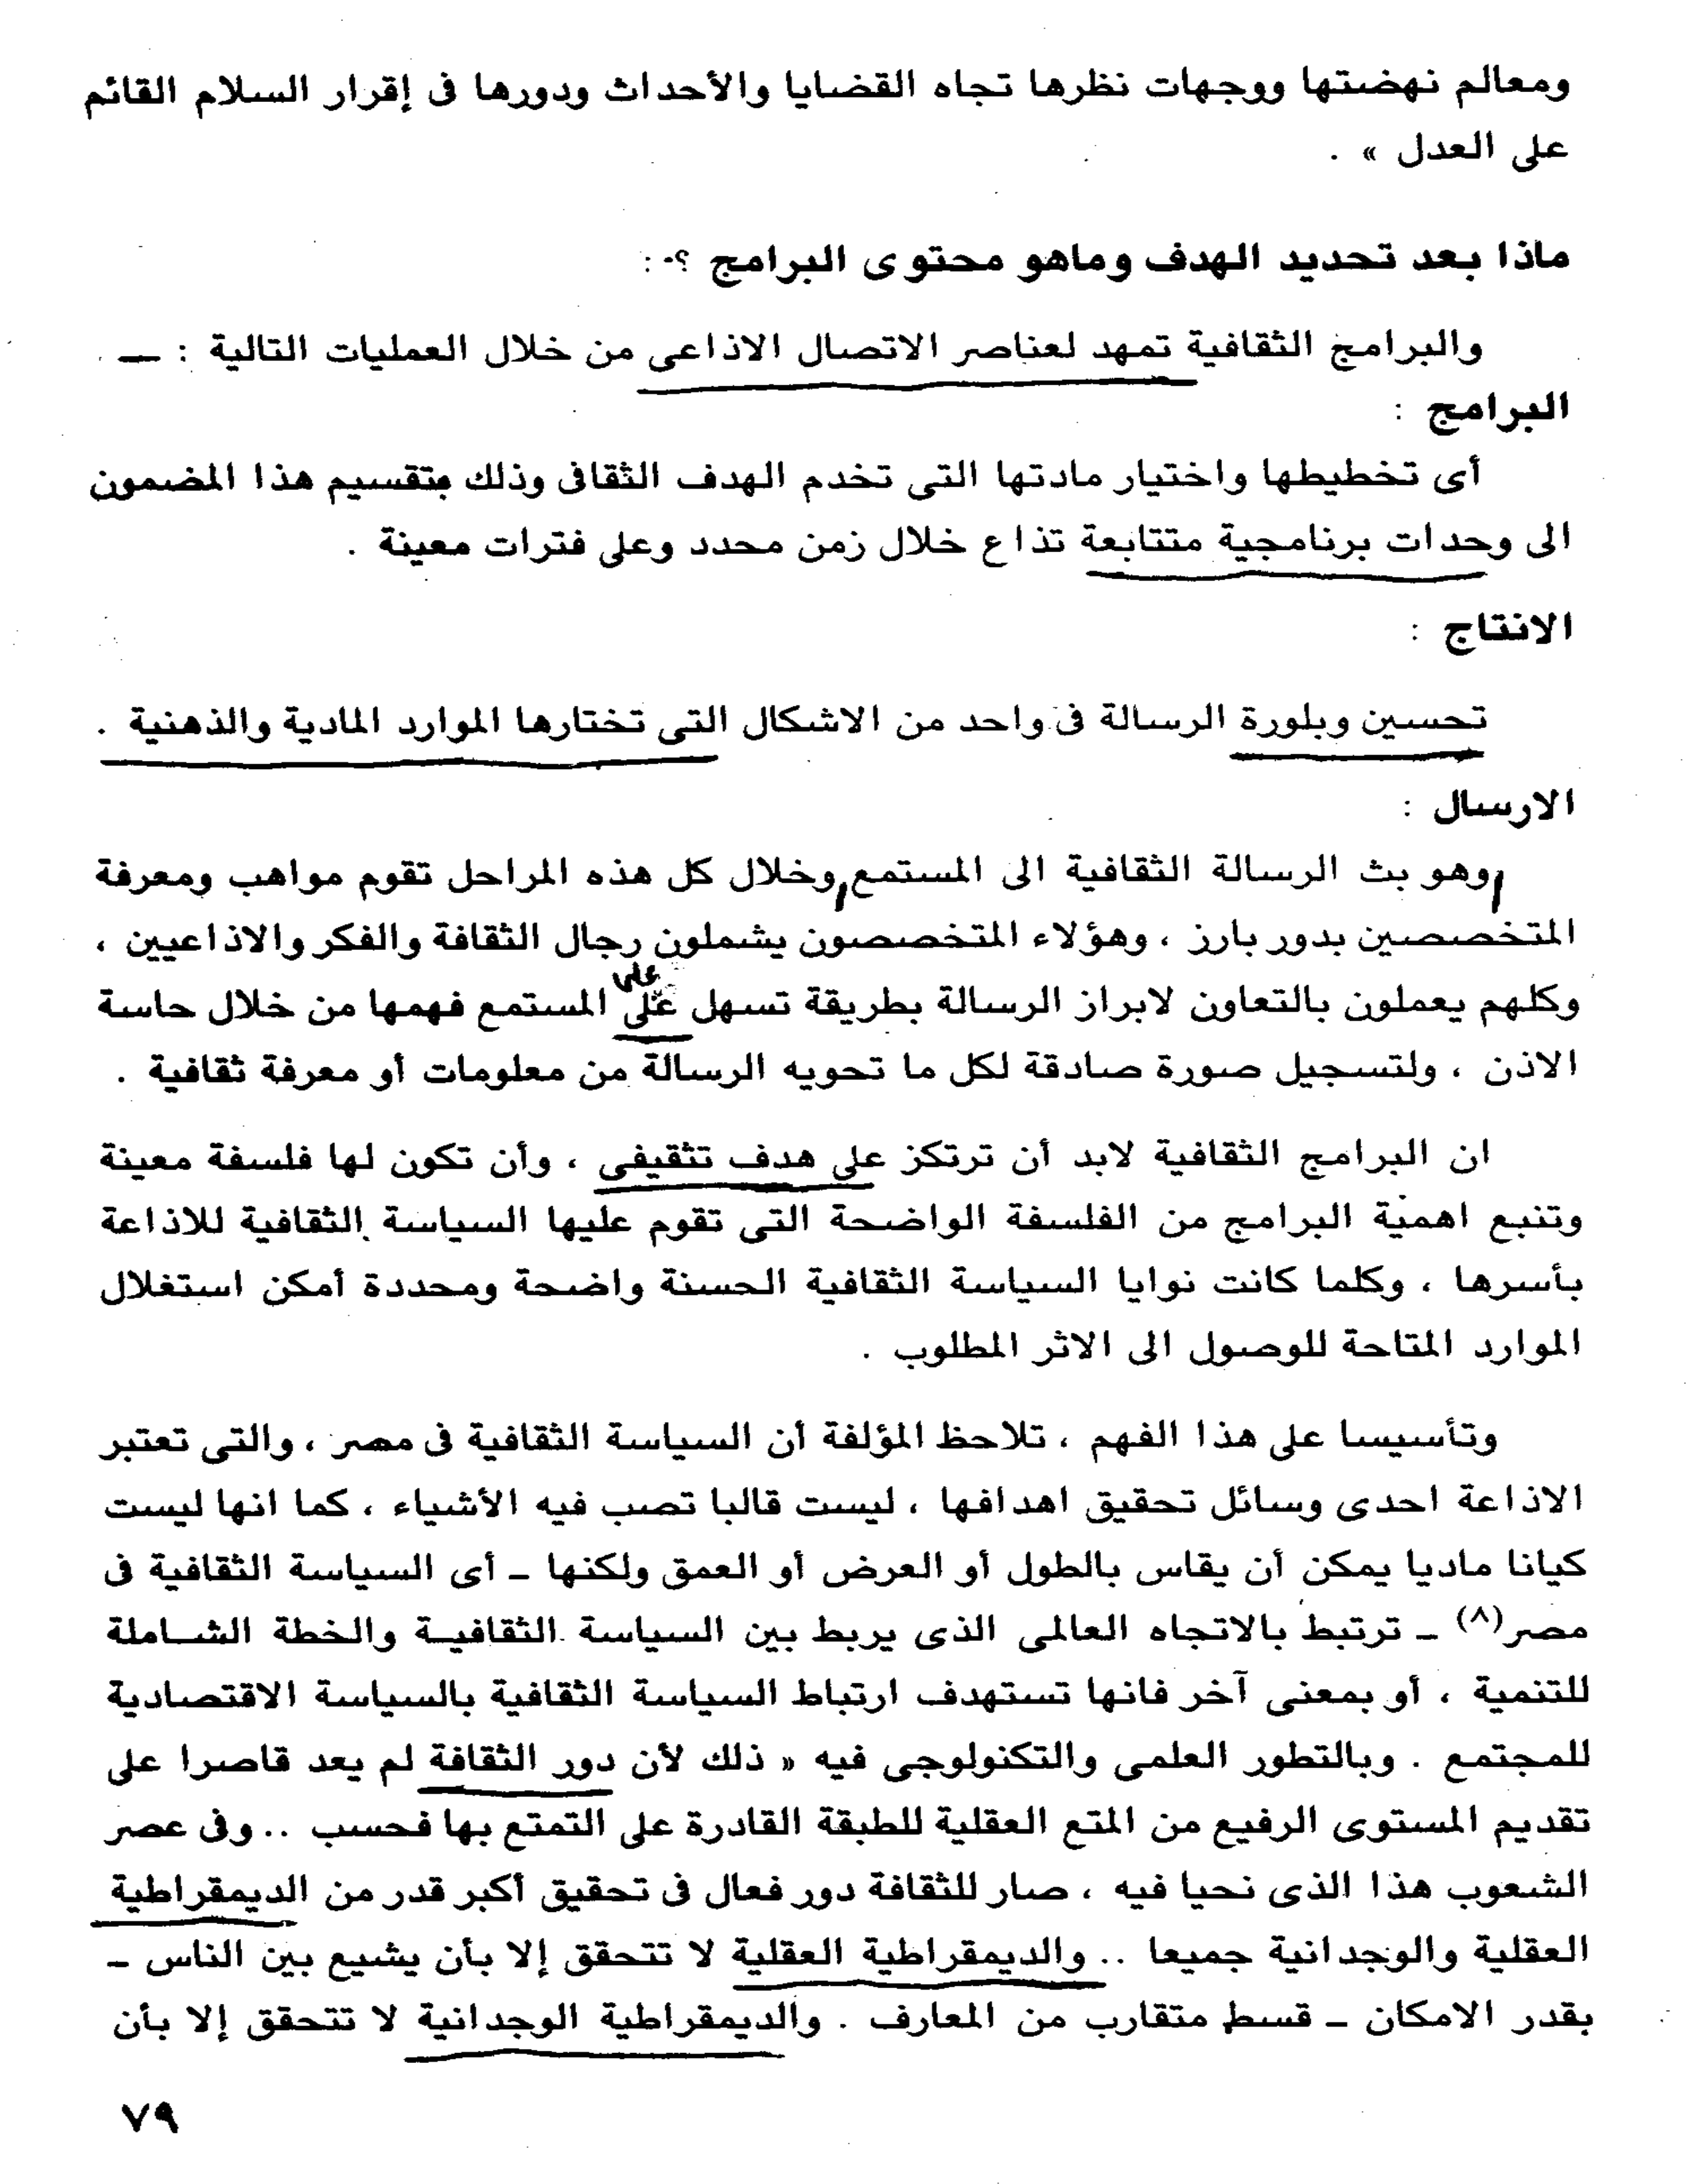 ومعالم نهضتها ووجهات نظرها تجاه القضايا والأحداث ودورها فى إقرار السلام القائم
على العدل » .
ماذا بعد تحديد الهدف وماهو محتوى البرامج ؟- :
والبرامج الثقافية تمهد لعناصر الاتصال الاذاعى من خلال العمليات التالية : —
البرامج :
أى تخطيطها واختيار مادتها التى تخدم الهدف الثقافى وذلك بتقسيم هذا المضمون
الى وحدات برنامجية متتابعة تذاع خلال زمن محدد وعلى فترات معينة .
الانتاج :
تحسين وبلورة الرسالة فى واحد من الاشكال التى تختارها الموارد المادية والذهنية .
الارسال :
وهو بث الرسالة الثقافية الى المستمع وخلال كل هذه المراحل تقوم مواهب ومعرفة
المتخصصين بدور بارز ، وهؤلاء المتخصصون يشملون رجال الثقافة والفكر والاذاعيين ،
على
وكلهم يعملون بالتعاون لابراز الرسالة بطريقة تسهل على المستمع فهمها من خلال حاسة
الاذن ، ولتسجيل صورة صادقة لكل ما تحويه الرسالة من معلومات أو معرفة ثقافية .
ان البرامج الثقافية لابد أن ترتكز على هدف تثقيفى ، وأن تكون لها فلسفة معينة
وتنبع اهمية البرامج من الفلسفة الواضحة التى تقوم عليها السياسة الثقافية للاذاعة
بأسرها ، وكلما كانت نوايا السياسة الثقافية الحسنة واضحة ومحددة أمكن استغلال
الموارد المتاحة للوصول الى الاثر المطلوب .
وتأسيسا على هذا الفهم ، تلاحظ المؤلفة أن السياسة الثقافية فى مصر ، والتى تعتبر
الاذاعة احدى وسائل تحقيق اهدافها ، ليست قالبا تصب فيه الأشياء ، كما انها ليست
كيانا ماديا يمكن أن يقاس بالطول أو العرض أو العمق ولكنها - أى السياسة الثقافية فى
مصر(٨) - ترتبط بالاتجاه العالمى الذى يربط بين السياسة الثقافيـة والخطة الشـاملة
للتنمية ، أو بمعنى آخر فانها تستهدف ارتباط السياسة الثقافية بالسياسة الاقتصادية
للمجتمع . وبالتطور العلمى والتكنولوجى فيه « ذلك لأن دور الثقافة لم يعد قاصرا على
تقديم المستوى الرفيع من المتع العقلية للطبقة القادرة على التمتع بها فحسب .. وفى عصر
الشعوب هذا الذى نحيا فيه ، صار للثقافة دور فعال فى تحقيق أكبر قدر من الديمقراطية
العقلية والوجدانية جميعا .. والديمقراطية العقلية لا تتحقق إلا بأن يشيع بين الناس -
بقدر الامكان - قسط متقارب من المعارف . والديمقراطية الوجدانية لا تتحقق إلا بأن
٧٩